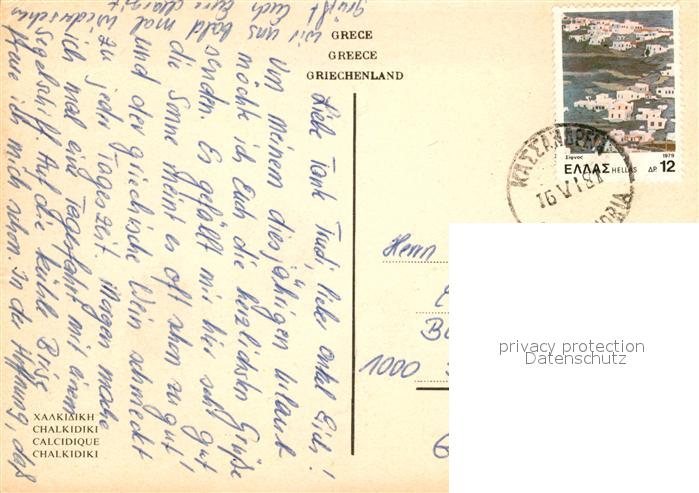 GRECE
GREECE
GRIECHENLAND
Liebe Tante Trudi, liebe Onkel Erich!
Von meinem diesjährigen Urlaub
möchte ich Euch die herzlichsten Grüße
senden. Es gefällt mir hier sehr gut
die Sonne meint es oft schon zu gut!
und der griechische Wein schmeckt
zu jeder Tageszeit. Morgen mache
ich mal eine Tagesfahrt mit einem
Segelschiff. Auf die kühle Brise
freue ich mich schon. In der Hoffnung, daß
wir uns bald mal wiedersehen
grüßt Euch Eure
ΧΑΛΚΙΔΙΚΗ
CHALKIDIKI
CALCIDIQUE
CHALKIDIKI
Σίφνος 1979
ΕΛΛΑΣ HELLAS ΔΡ. 12
ΚΑΣΣΑΝΔΡΕΙΑ
16 VI 81
Herrn
1000
privacy protection
Datenschutz